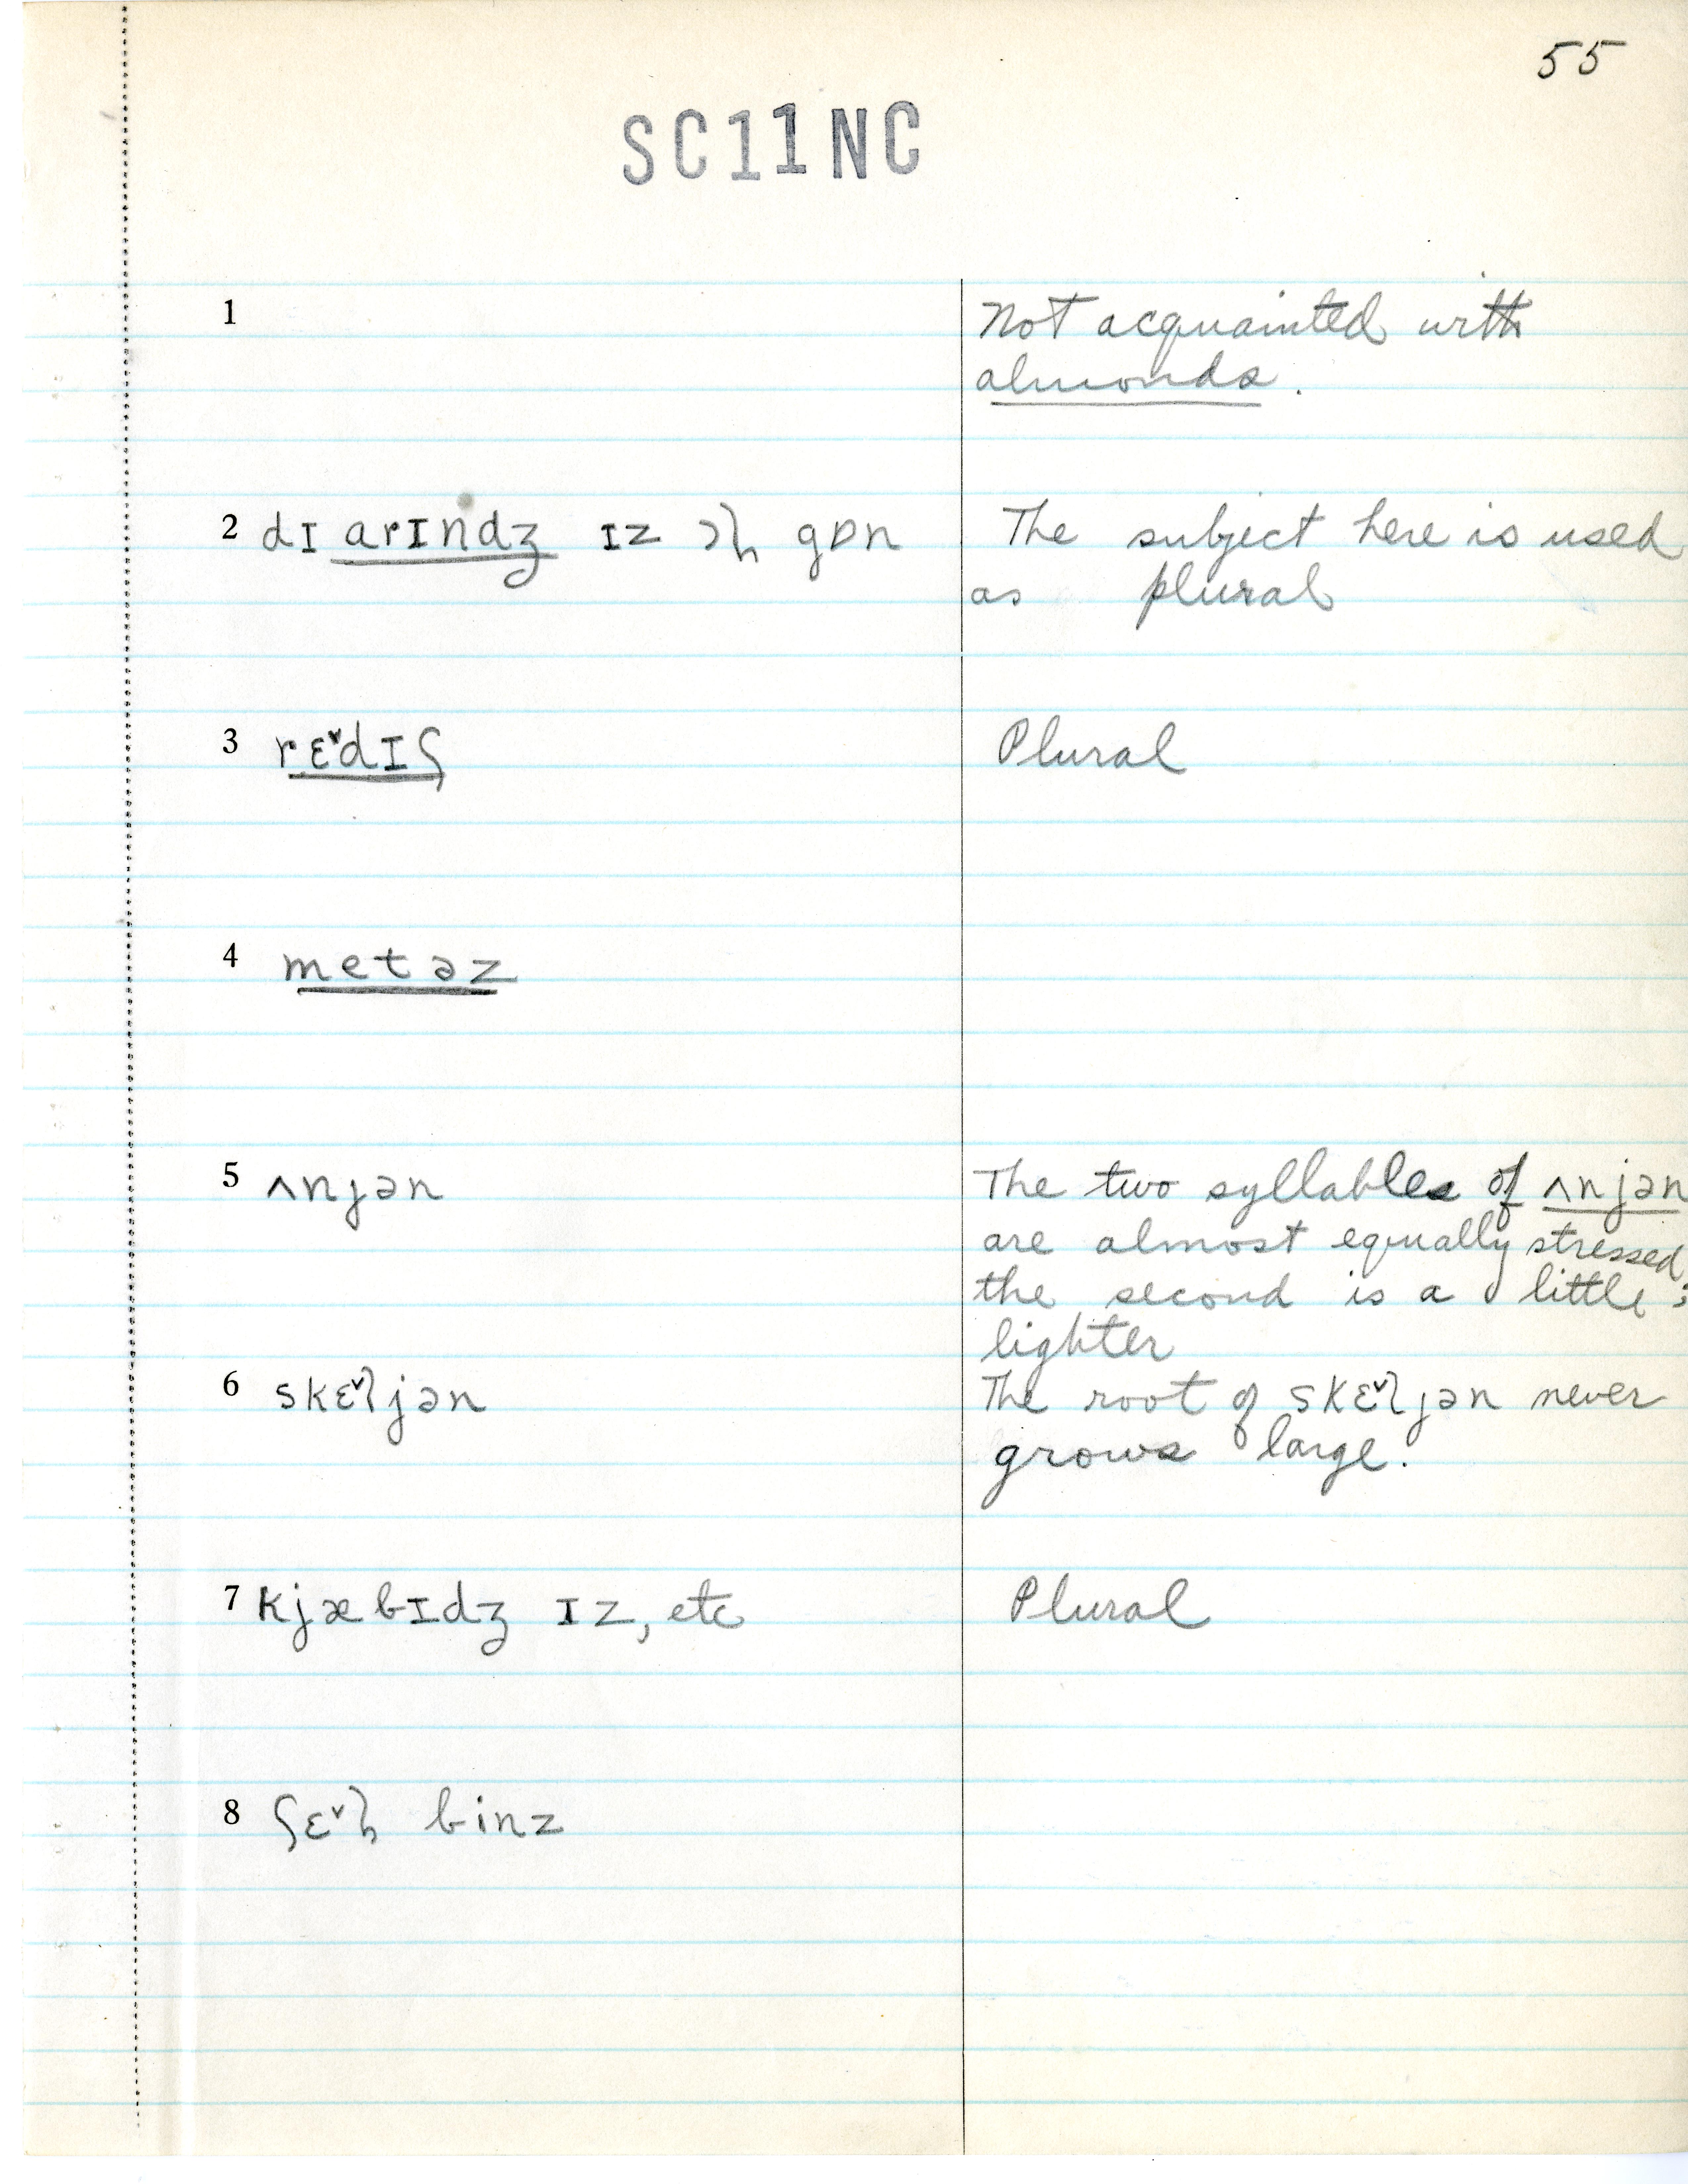 55
SC11NC
1
Not acquainted with
almonds.
2 dɪ arɪndʒ ɪz ɔɫ gɒn
The subject here is used
as plural
3 rɛ˅dɪʃ
Plural
4 metəz
5 ʌnjən
The two syllables of ʌnjən
are almost equally stressed;
the second is a little
lighter
6 skɛ˅ljən
The root of skɛ˅ljən never
grows large.
7 kjæbɪdʒ ɪz, etc
Plural
8 ʃɛ˅ɫ binz